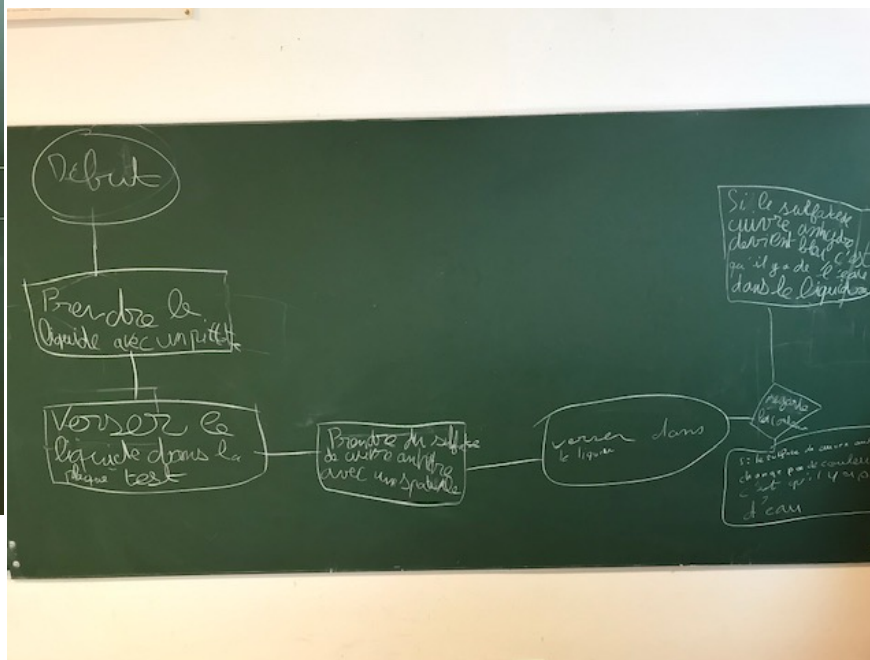 Début
Prendre le
liquide avec un pittet
Verser le
liquide dans la
plaque test
Prendre du sulfate
de cuivre anhydre
avec un spatule
verser dans
le liquide
regarder
la couleur
Si le sulfate de
cuivre anhydre
devient bleu c'est
qu'il y a de l'eau
dans le liquide
Si le sulfate de cuivre
change pas de couleur
c'est qu'il y a pas
d'eau